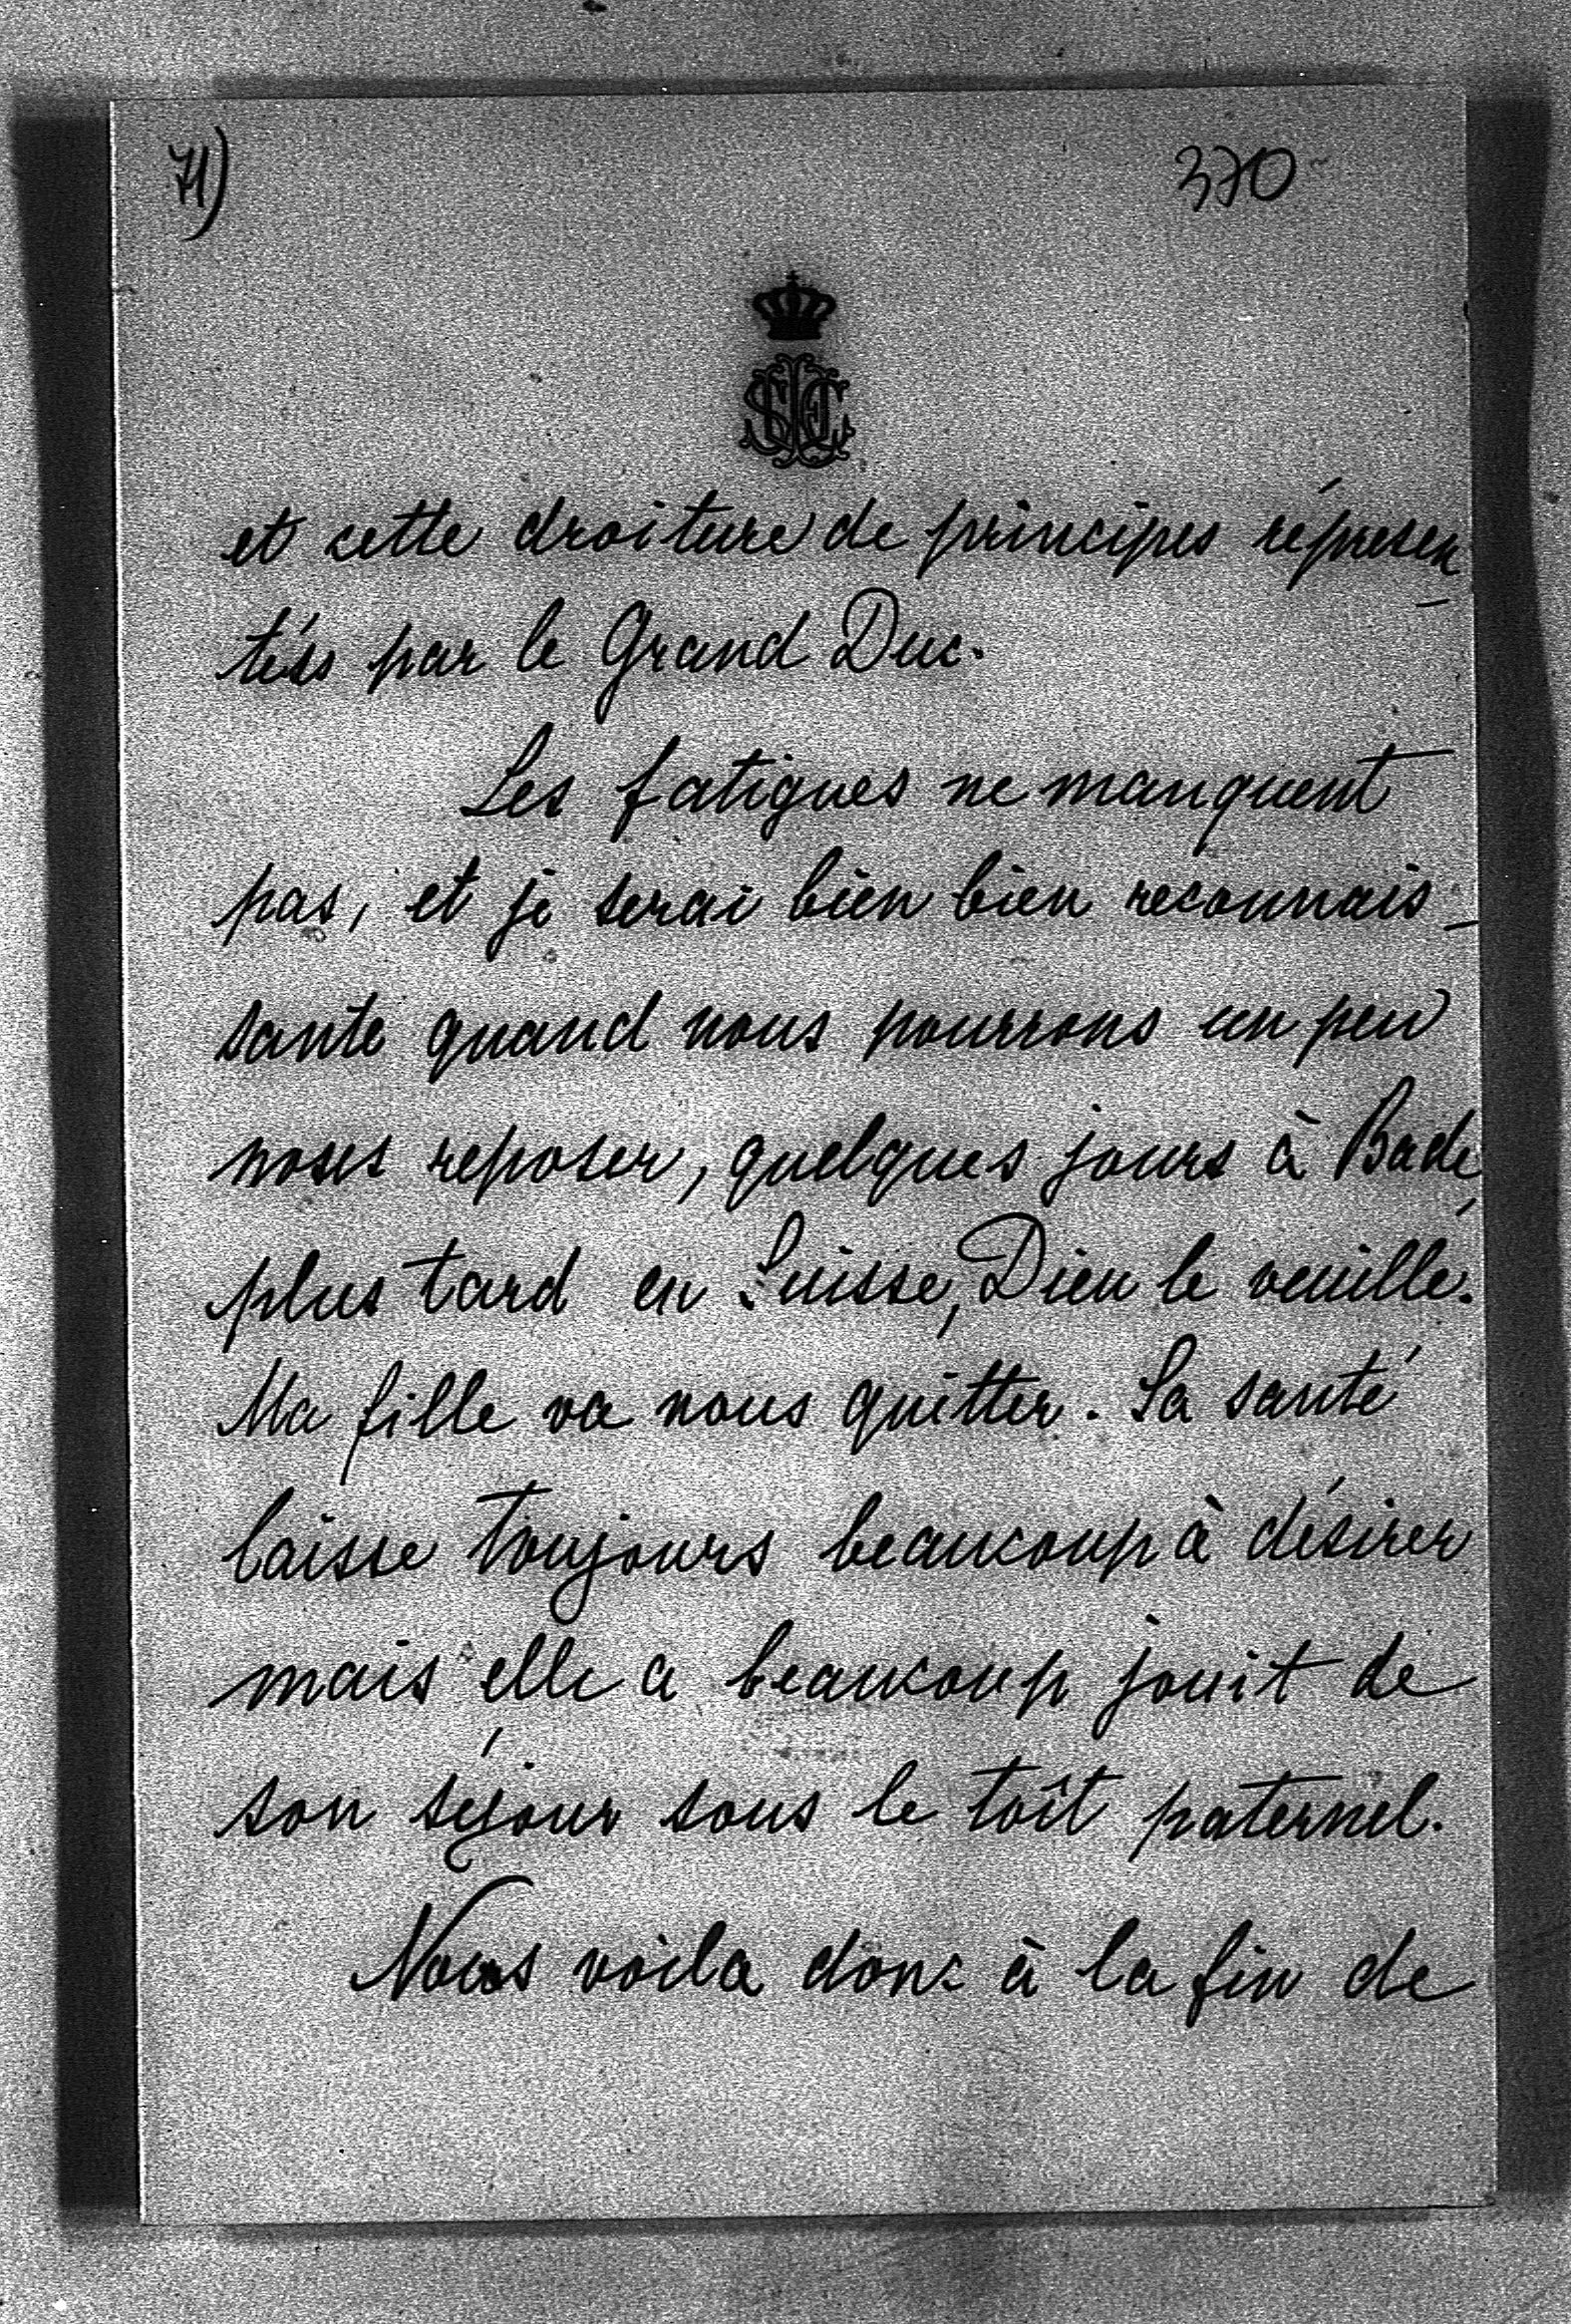 71) 370
et cette droiture de principes réprésen
tés par le Grand Duc.
Les fatigues ne manquent
pas, et je serai bien bien reconnais-
sante quand nous pourrons un peu
nous reposer, quelques jours à Bade,
plus tard en Suisse, Dieu le veuille.
Ma fille va nous quitter. Sa santé
laisse toujours beaucoup à désirer
mais elle a beaucoup jouit de
son séjour sous le toît paternel.
Nous voila donc à la fin de